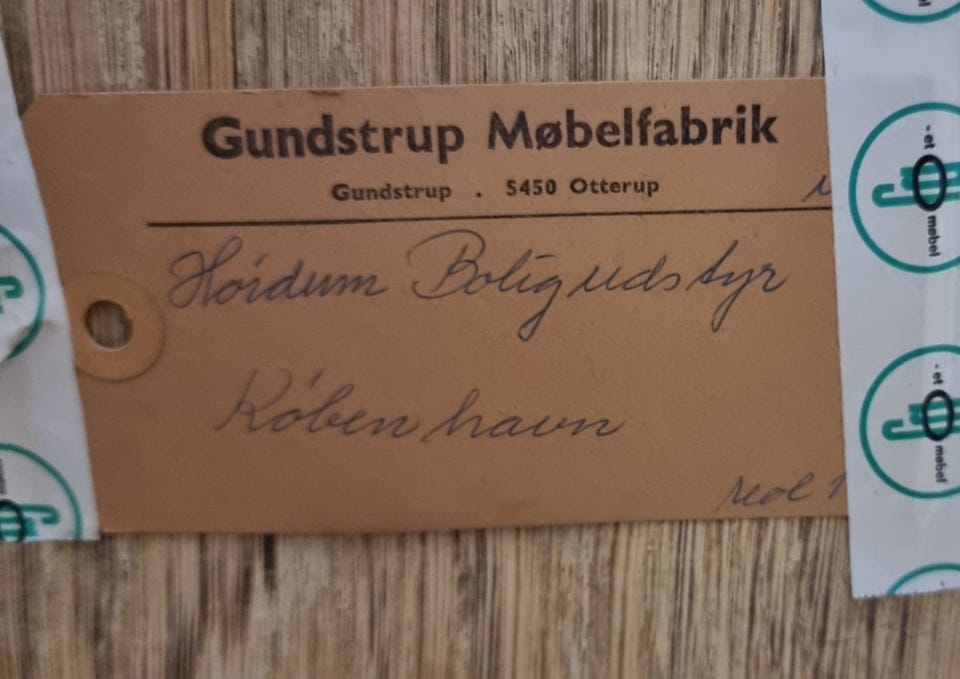 Gundstrup Møbelfabrik
Gundstrup . 5450 Otterup
Hoidum Boligudstyr
København
reol 1
- et
møbel
- et
møbel